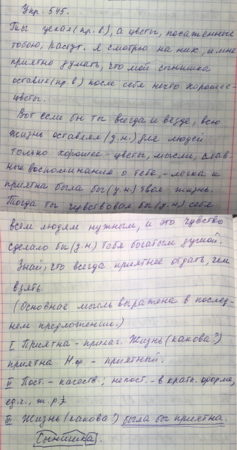 Упр. 545.
Ты уехал (пр. в), а цветы, посаженные
тобою, растут. Я смотрю на них, и мне
приятно думать, что мой сынишка
оставил (пр. в) после себя нечто хорошее -
цветы.
Вот если бы ты всегда и везде, всю
жизнь оставлял (у.н.) для людей
только хорошее - цветы, мысли, слав-
ные воспоминания о тебе, - легка и
приятна была бы (у.н) твоя жизнь.
Тогда ты чувствовал бы (у.н) себя
всем людям нужным, и это чувство
сделало бы (у.н) тебя богатым душой.
Знай, что всегда приятнее отдать, чем
взять
(Основная мысль выражена в послед-
нем предложении.)
I Приятна - прилаг. Жизнь (какова?)
приятна Н.ф - приятный.
II Пост. - качеств.; непост. - в кратк. форме,
ед.ч., ж.р.
III Жизнь (какова?) была бы приятна.
Сынишка.